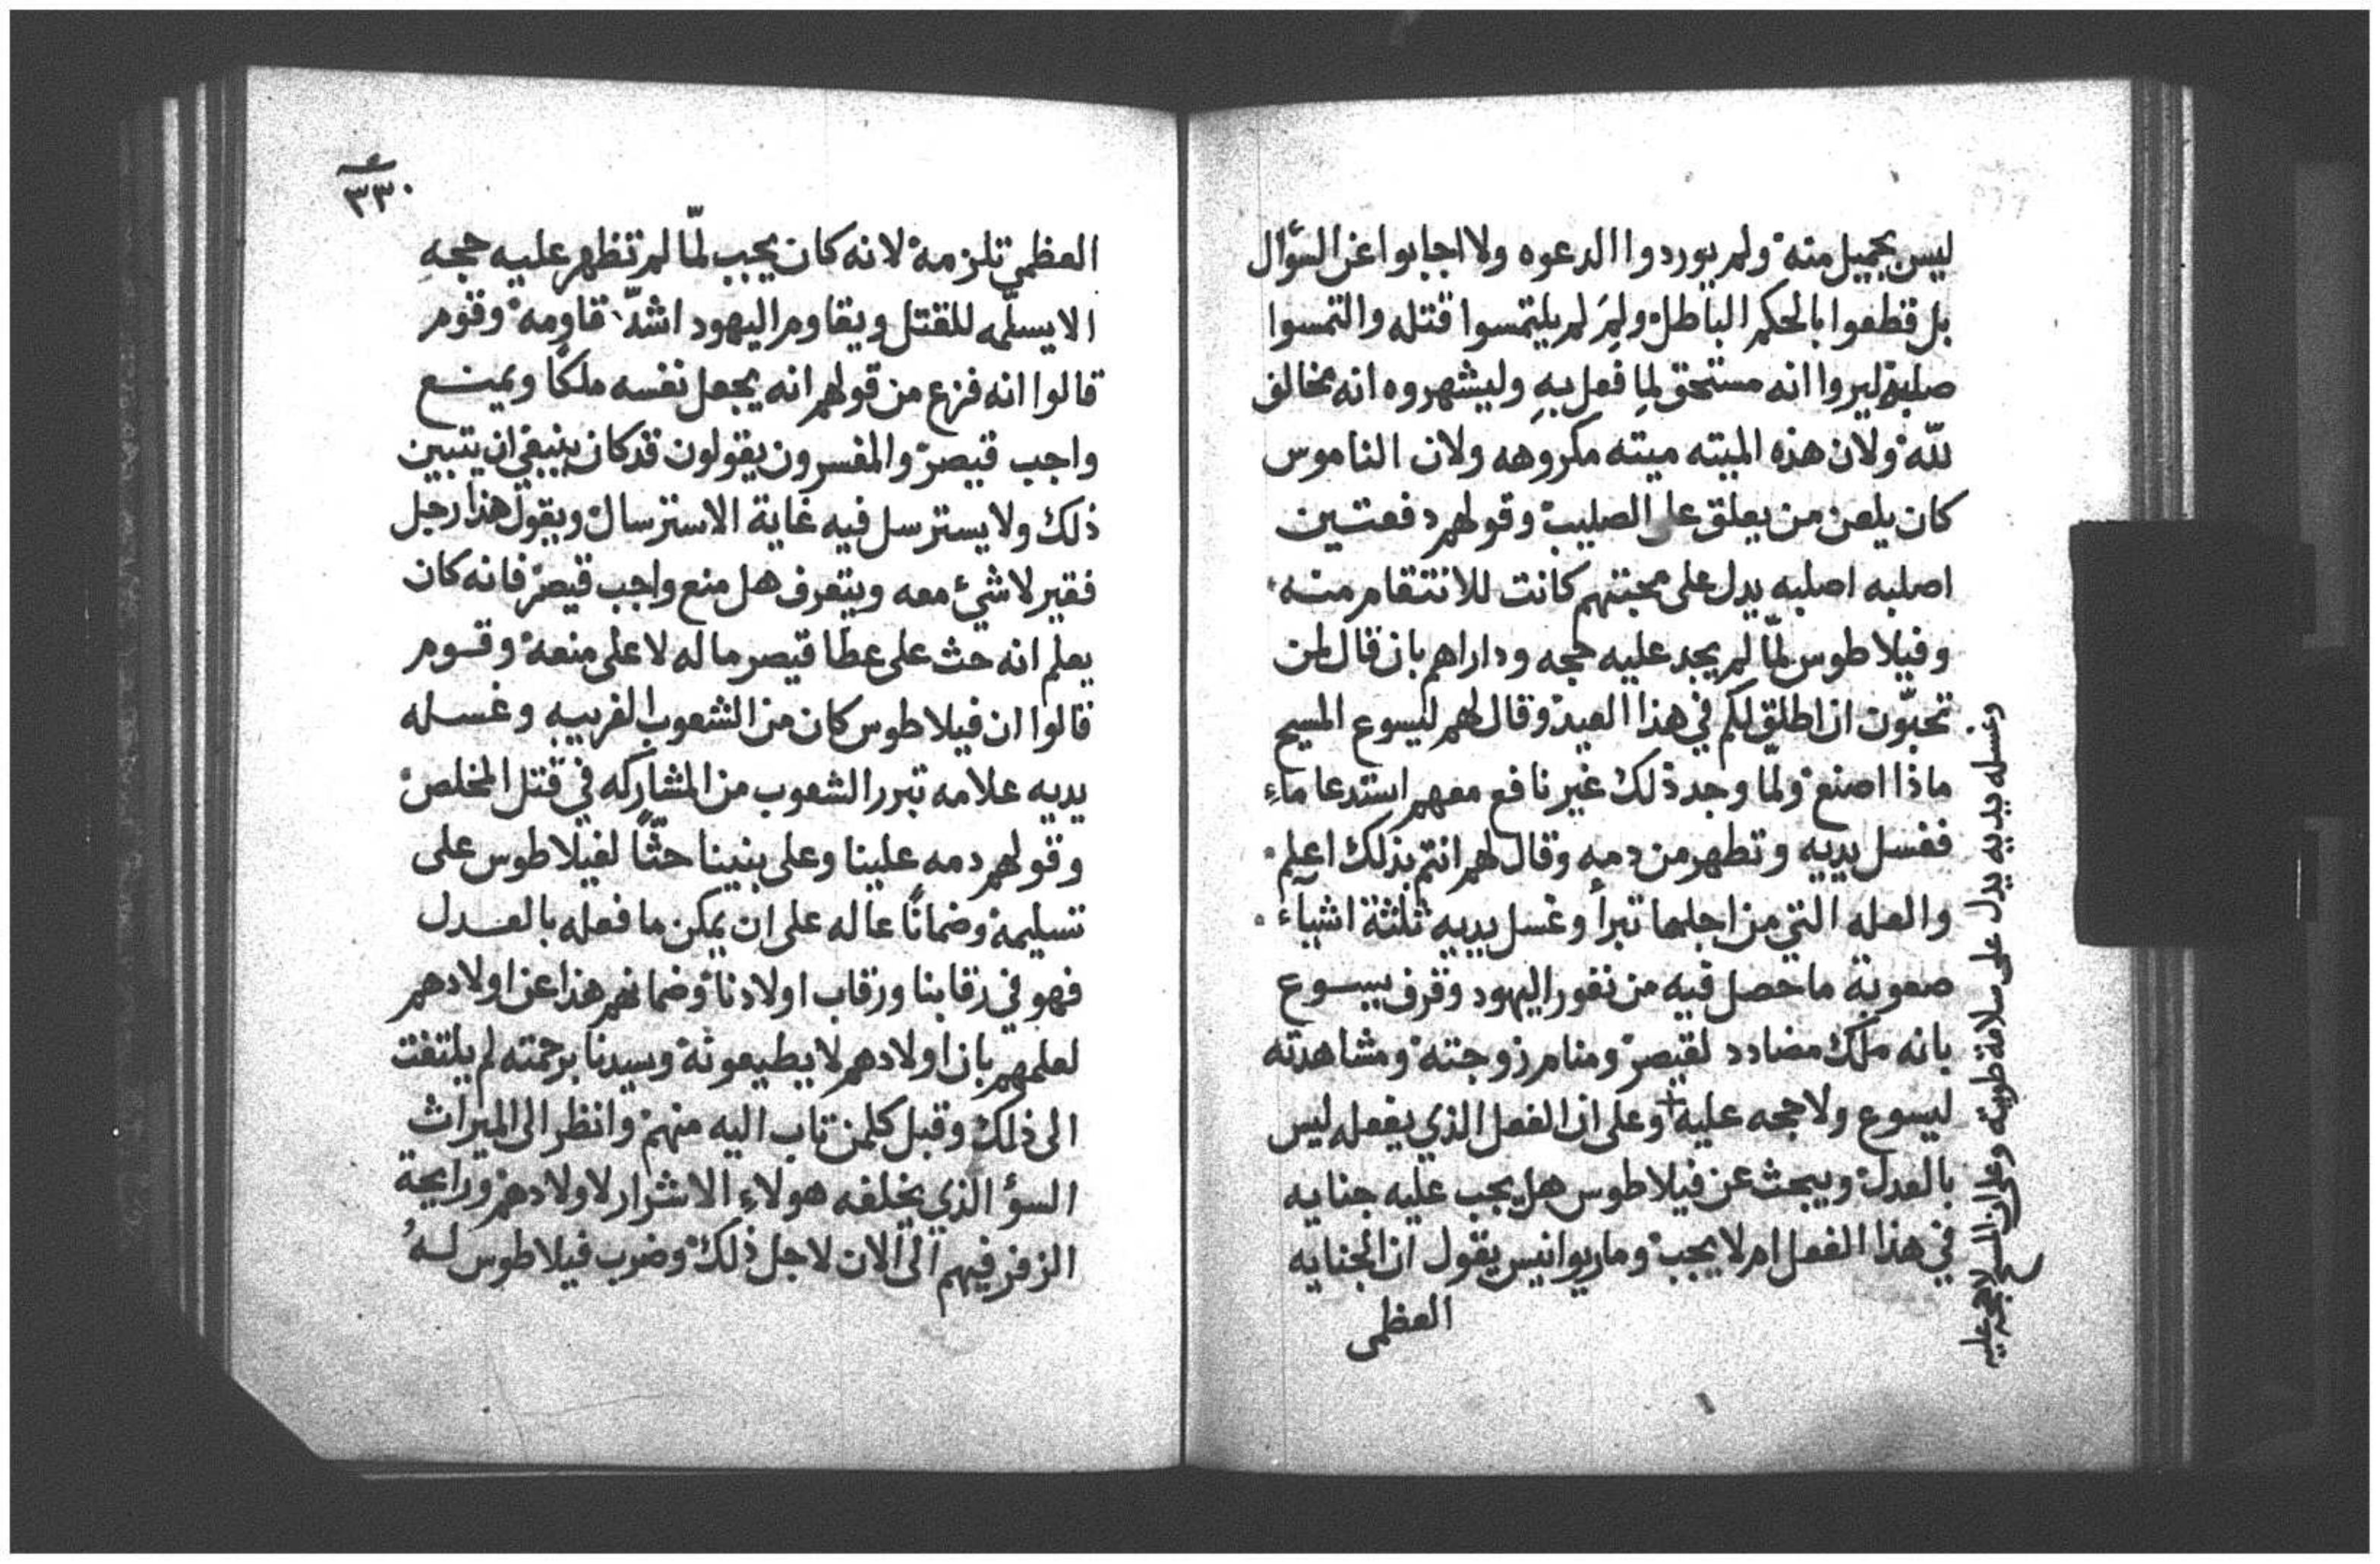 ليس بجميل منه ولم يوردوا الدعوه ولا اجابوا عن السؤال
بل قطعوا بالحكم الباطل ولِمَ لم يلتمسوا قتله والتمسوا
صلبه ليروا انه مستحق لِما فُعل بهِ وليشهروه انه مخالف
للّه ولان هذه الميته ميته مكروهه ولان الناموس
كان يلعن من يعلق على الصليب وقولهم دفعتين
اصلبه اصلبه يدل على محبتهم كانت للانتقام منه
وفيلاطوس لمّا لم يجد عليه حجه وداراهم بان قال لمن
تحبّون ان اطلق لكم في هذا العيد وقال لهم ليسوع المسيح
ماذا اصنع ولمّا وجد ذلك غير نافع معهم استدعا ماءِ
فغسل يديه وتطهر من دمه وقال لهم انتم بذلك اعلم
والعله التي من اجلها تبرأ وغسل يديه ثلثة اشيآء
صعوبة ما حصل فيه من نفور اليهود وقرف يسوع
بانه ملك مضادد لقيصر ومنام زوجته ومشاهدته
ليسوع ولا حجه عليه + وعلى ان الفعل الذي يفعله ليس
بالعدل ويبحث عن فيلاطوس هل يجب عليه جنايه
في هذا الفعل ام لا يجب وماريوانيس يقول ان الجنايه
العظمى
وغسله يديه يدل على سلامة طويته وعلى ان المسيح لا حجه عليه
٣٣٠
العظمي تلزمه لانه كان يجب لمّا لم تظهر عليه حجهِ
الا يسلّمه للقتل ويقاوم اليهود اشدّ مقاومه وقوم
قالوا انه فزع من قولهم انه يجعل نفسه ملكًا ويمنع
واجب قيصر والمفسرون يقولون قد كان ينبغي ان يتبين
ذلك ولا يسترسل فيه غاية الاسترسال ويقول هذا رجل
فقير لا شيءٔ معه ويتعرف هل منع واجب قيصر فانه كان
يعلم انه حث على عطا قيصر ما له لا على منعه وقوم
قالوا ان فيلاطوس كان من الشعوب الغريبه وغسله
يديه علامه تبرر الشعوب من المشاركه في قتل المخلص
وقولهم دمه علينا وعلى بنينا حثًّا لفيلاطوس على
تسليمه وضمانًا له على ان يمكن ما فعله بالعدل
فهو في رقابنا ورقاب اولادنا وضمانهم هذا عن اولادهم
لعلمهم بان اولادهم لا يطيعونه وسيدنا برحمته لم يلتفت
الى ذلك وقبل كلمن تاب اليه منهم وانظر الى الميراث
السؤ الذي يخلفه هولاءِ الاشرار لاولادهم ورايحة
الزفر فيهم الى الان لاجل ذلك وضرب فيلاطوس لهُ